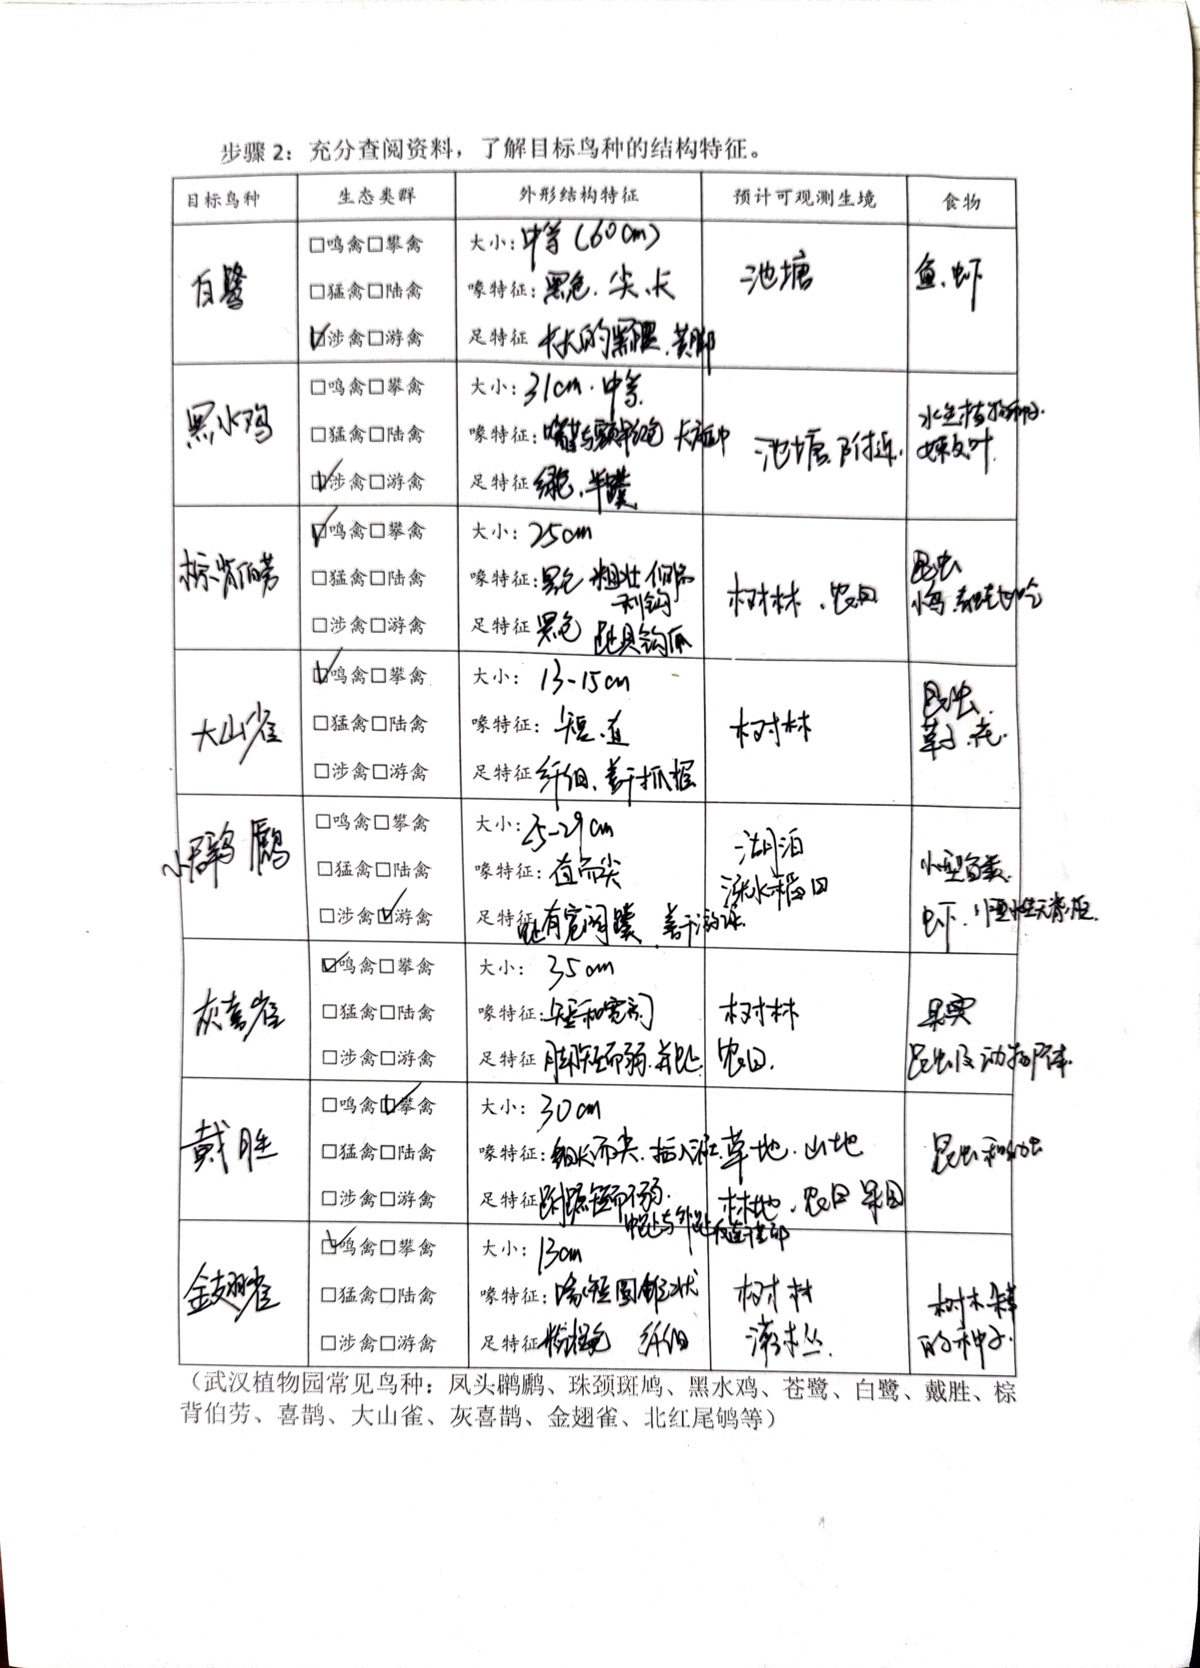 步骤 2：充分查阅资料，了解目标鸟种的结构特征。
目标鸟种 生态类群 外形结构特征 预计可观测生境 食物
白鹭
☐鸣禽☐攀禽
☐猛禽☐陆禽
☑涉禽☐游禽
大小：中等（60cm）
喙特征：黑色、尖、长
足特征 长长的黑腿、黄脚
池塘
鱼、虾
黑水鸡
☐鸣禽☐攀禽
☐猛禽☐陆禽
☑涉禽☐游禽
大小：31cm·中等
喙特征：嘴基与额甲红色
足特征 绿色、半蹼
池塘附近
水生植物种子、
嫩叶
棕背伯劳
☑鸣禽☐攀禽
☐猛禽☐陆禽
☐涉禽☐游禽
大小：25cm
喙特征：黑色 粗壮 侧扁
利钩
足特征 黑色 趾具钩爪
树林、农田
昆虫
小鸟
大山雀
☑鸣禽☐攀禽
☐猛禽☐陆禽
☐涉禽☐游禽
大小：13-15cm
喙特征：短、直
足特征 纤细、善于抓握
树林
昆虫、
草子、花
小䴙䴘
☐鸣禽☐攀禽
☐猛禽☐陆禽
☐涉禽☑游禽
大小：25-29cm
喙特征：直而尖
足特征 趾有宽阔蹼、善于游泳
湖泊
涨水稻田
小型鱼类、
虾、小型水生无脊椎
灰喜雀
☑鸣禽☐攀禽
☐猛禽☐陆禽
☐涉禽☐游禽
大小：35cm
喙特征：短和宽阔
足特征 脚短而弱、并趾
树林
农田.
果实
昆虫及动物尸体
戴胜
☐鸣禽☑攀禽
☐猛禽☐陆禽
☐涉禽☐游禽
大小：30cm
喙特征：细长而尖、插入泥土
足特征 跗蹠短而弱、
中趾与外趾
草地、山地
林地、农田 果园
昆虫和幼虫
金翅雀
☑鸣禽☐攀禽
☐猛禽☐陆禽
☐涉禽☐游禽
大小：13cm
喙特征：喙短圆锥状
足特征 纤细
树林
灌木丛.
树木
的种子.
（武汉植物园常见鸟种：凤头䴙䴘、珠颈斑鸠、黑水鸡、苍鹭、白鹭、戴胜、棕
背伯劳、喜鹊、大山雀、灰喜鹊、金翅雀、北红尾鸲等）